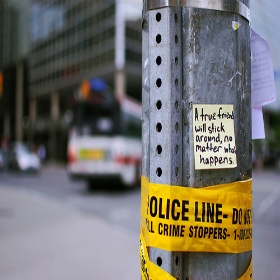 A true friend
will stick
around, no
matter what
happens.
POLICE LINE- DO NO
CRIME STOPPERS-